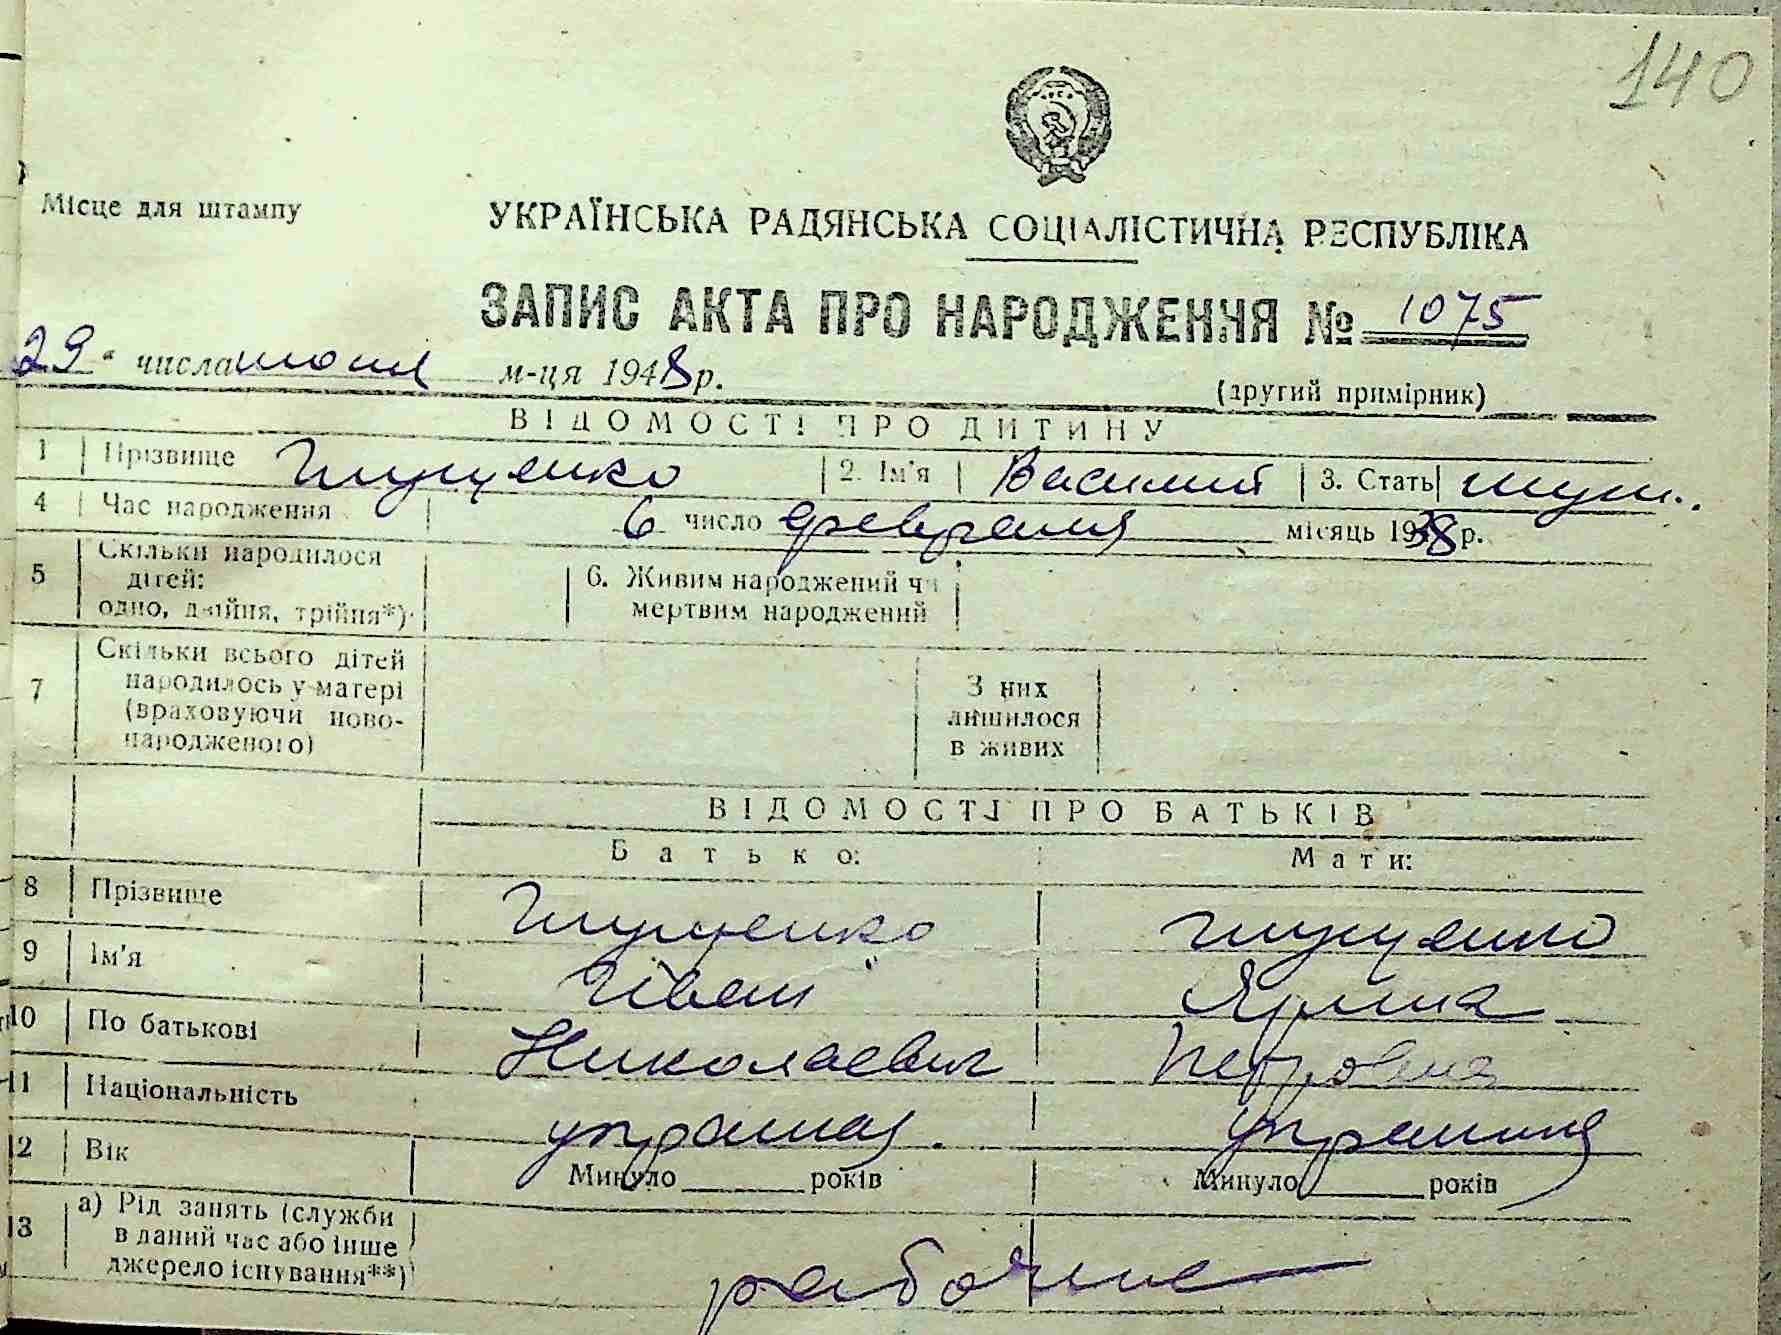 140
Місце для штампу
УКРАЇНСЬКА РАДЯНСЬКА СОЦІАЛІСТИЧНА РЕСПУБЛІКА
ЗАПИС АКТА ПРО НАРОДЖЕННЯ № 1075
29 " числа июня м-ця 1948 р.
(другий примірник)
ВІДОМОСТІ ПРО ДИТИНУ
1 Прізвище 2. Ім'я Василий 3. Стать муж.
4 Час народження 6 число февраля місяць 1938 р.
5 Скільки народилося дітей: одно, двійня, трійня*) 6. Живим народжений чи мертвим народжений
7 Скільки всього дітей народилось у матері (враховуючи ново-народженого) З них лишилося в живих
ВІДОМОСТІ ПРО БАТЬКІВ
Батько: Мати:
8 Прізвище
9 Ім'я Іван
10 По батькові Николаевич Петровна
11 Національність
12 Вік Минуло років Минуло років
13 а) Рід занять (служби в даний час або інше джерело існування**) рабочие